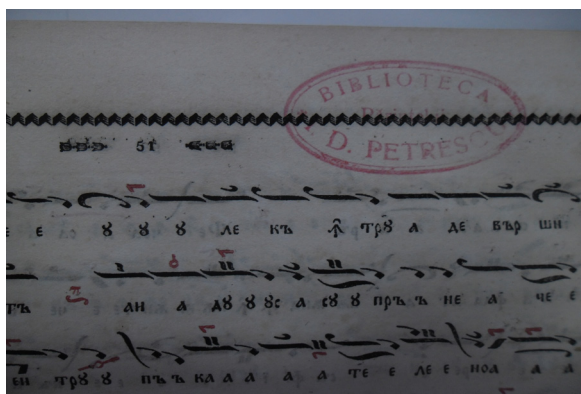 BIBLIOTECA
D. PETRESCU
51
Е Е Ꙋ Ꙋ Ꙋ ЛЕ КЪ ꙟ ТРꙊ А ДЕ ВЪР ШИ
ТЪ АН А ДꙊ Ꙋ Ꙋс А сꙊ Ꙋ ПРЪ Ъ НЕ А ЧЕ Е
ЕН ТРꙊ Ꙋ ПЪ Ъ КА А А А А ТЕ Е ЛЕ Е НОА А А